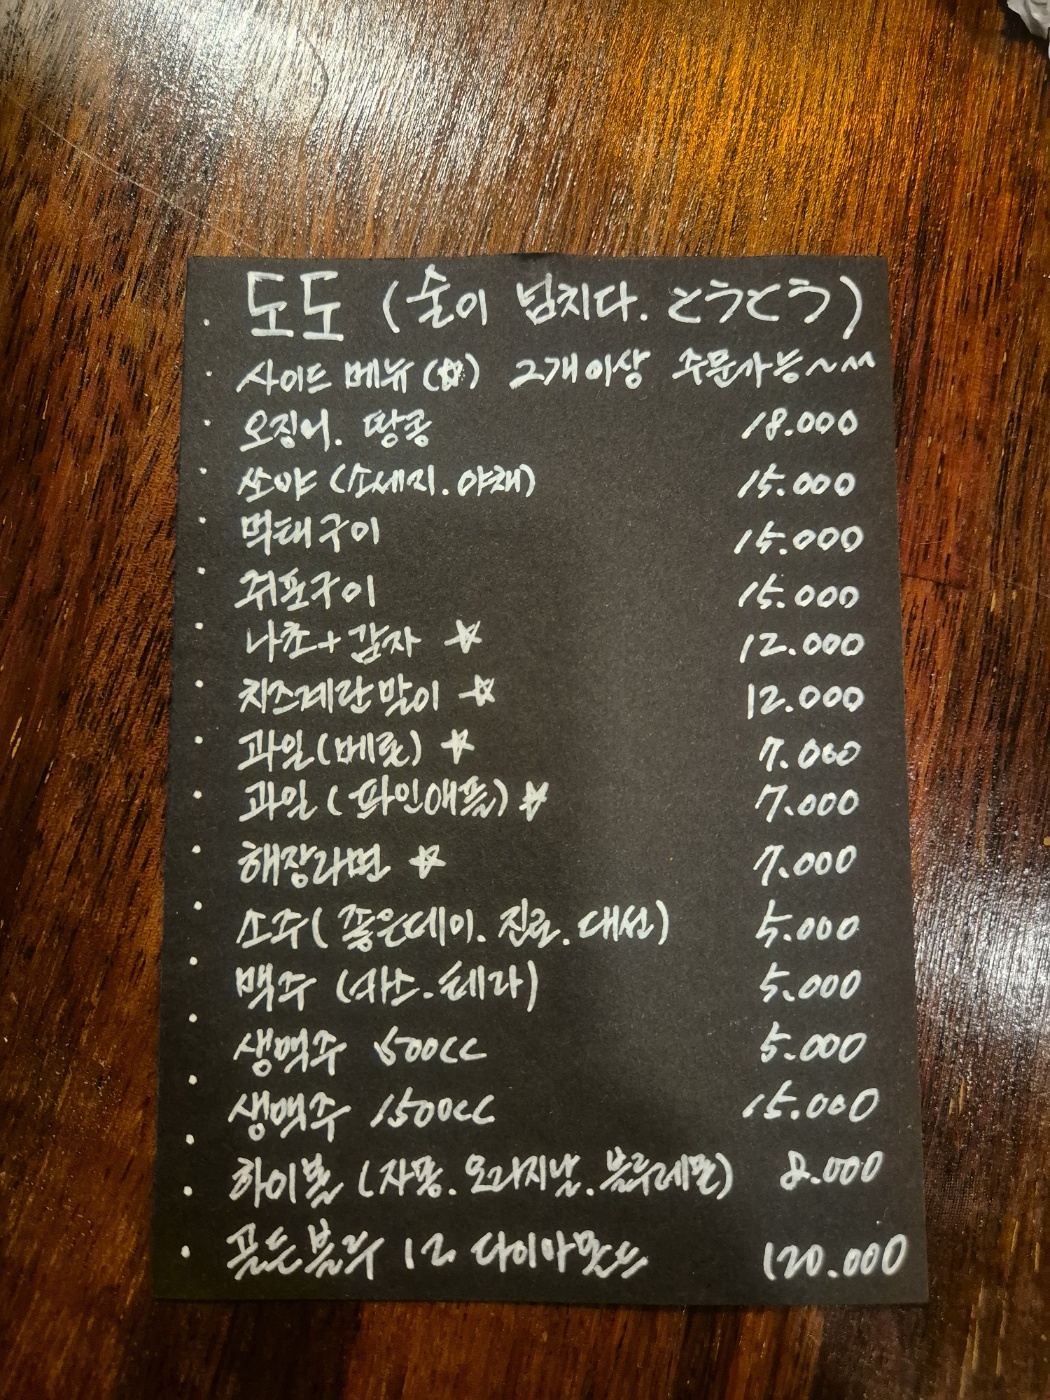 도도 (술이 넘치다. とうとう)
사이드 메뉴(☆) 2개이상 주문가능~~
오징어. 땅콩 18.000
쏘야 (소세지.야채) 15.000
먹태구이 15.000
쥐포구이 15.000
나쵸+감자 ☆ 12.000
치즈계란말이 ☆ 12.000
과일(메론) ☆ 7.000
과일(파인애플) ☆ 7.000
해장라면 ☆ 7.000
소주(좋은데이. 진로. 대선) 5.000
맥주 (카스.테라) 5.000
생맥주 500cc 5.000
생맥주 1500cc 15.000
하이볼 (자몽.오리지날.블루레몬) 8.000
골든블루 12 다이아몬드 120.000